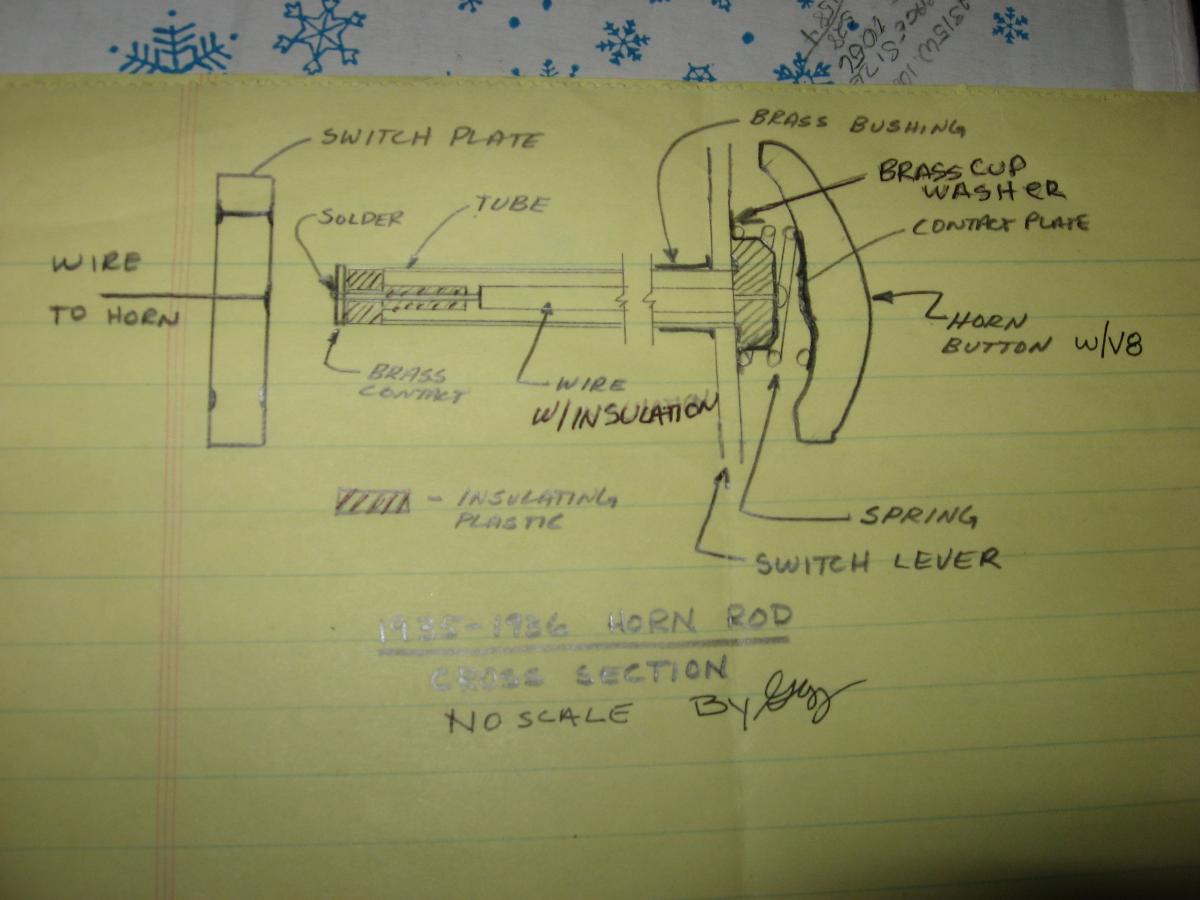 BRASS BUSHING
SWITCH PLATE
BRASS CUP
WASHER
SOLDER
TUBE
CONTACT PLATE
WIRE
TO HORN
HORN
BUTTON W/V8
BRASS
CONTACT
WIRE
W/INSULATION
- INSULATING
PLASTIC
SPRING
SWITCH LEVER
1935-1936 HORN ROD
CROSS SECTION
NO SCALE BY